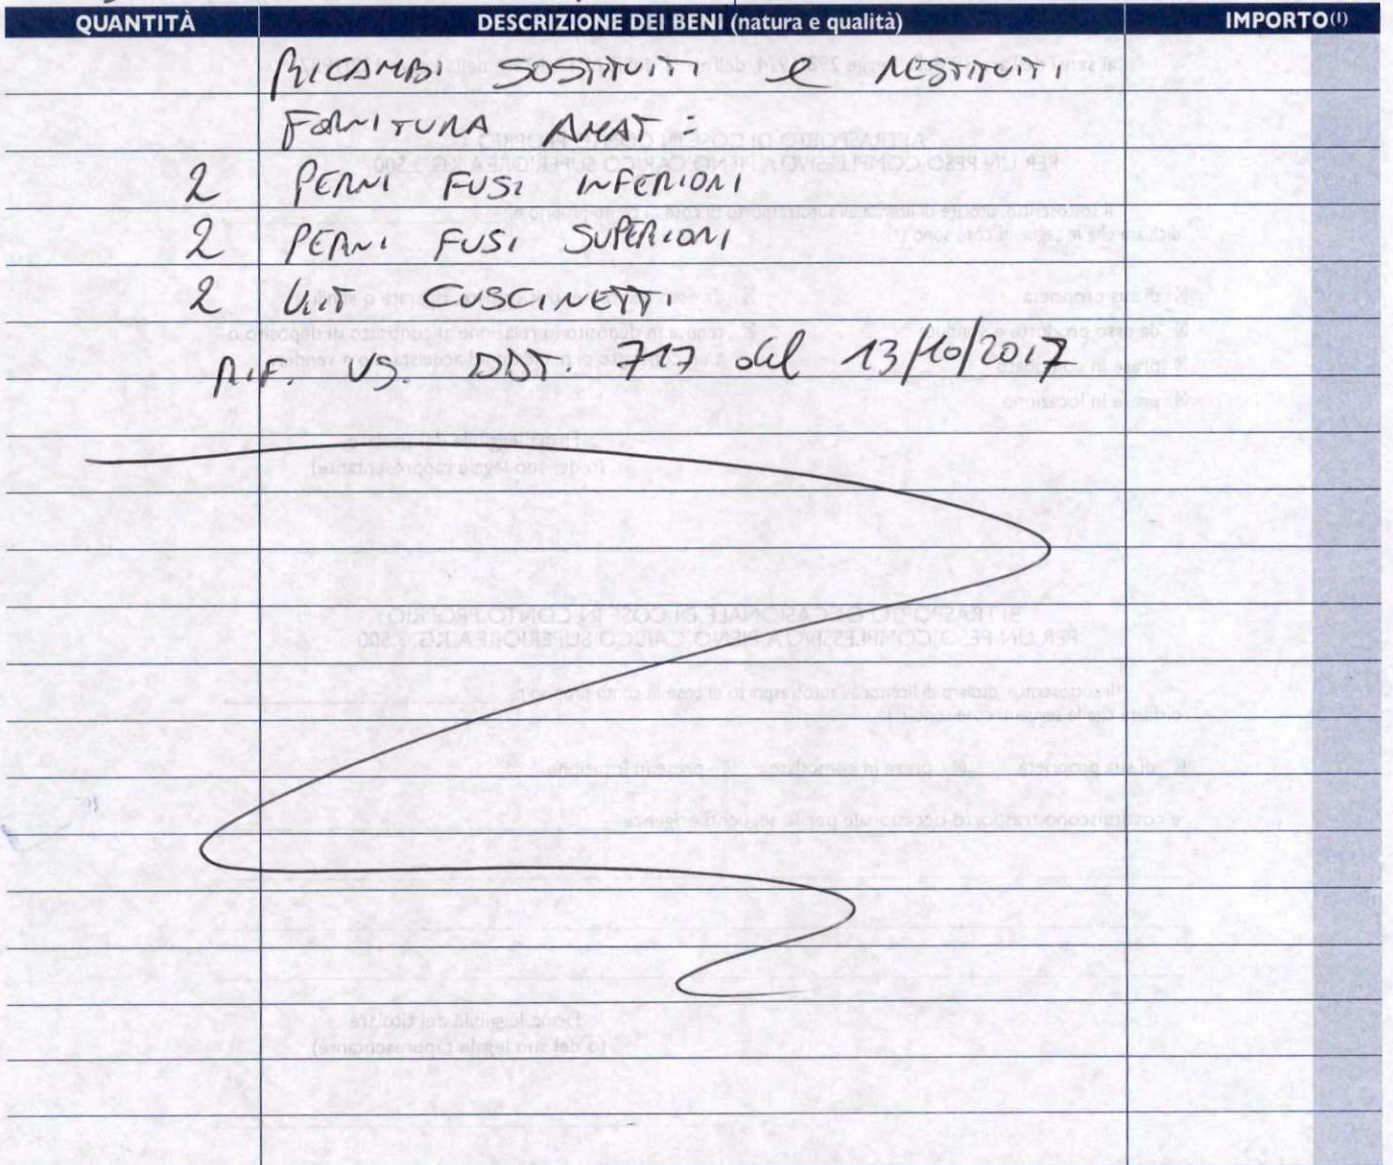 QUANTITÀ DESCRIZIONE DEI BENI (natura e qualità) IMPORTO(1)
RICAMBI SOSTITUITI e RESTITUITI
FORNITURA AMAT:
2 PERNI FUSI INFERIORI
2 PERNI FUSI SUPERIORI
2 KIT CUSCINETTI
RIF. VS. DDT. 717 del 13/10/2017